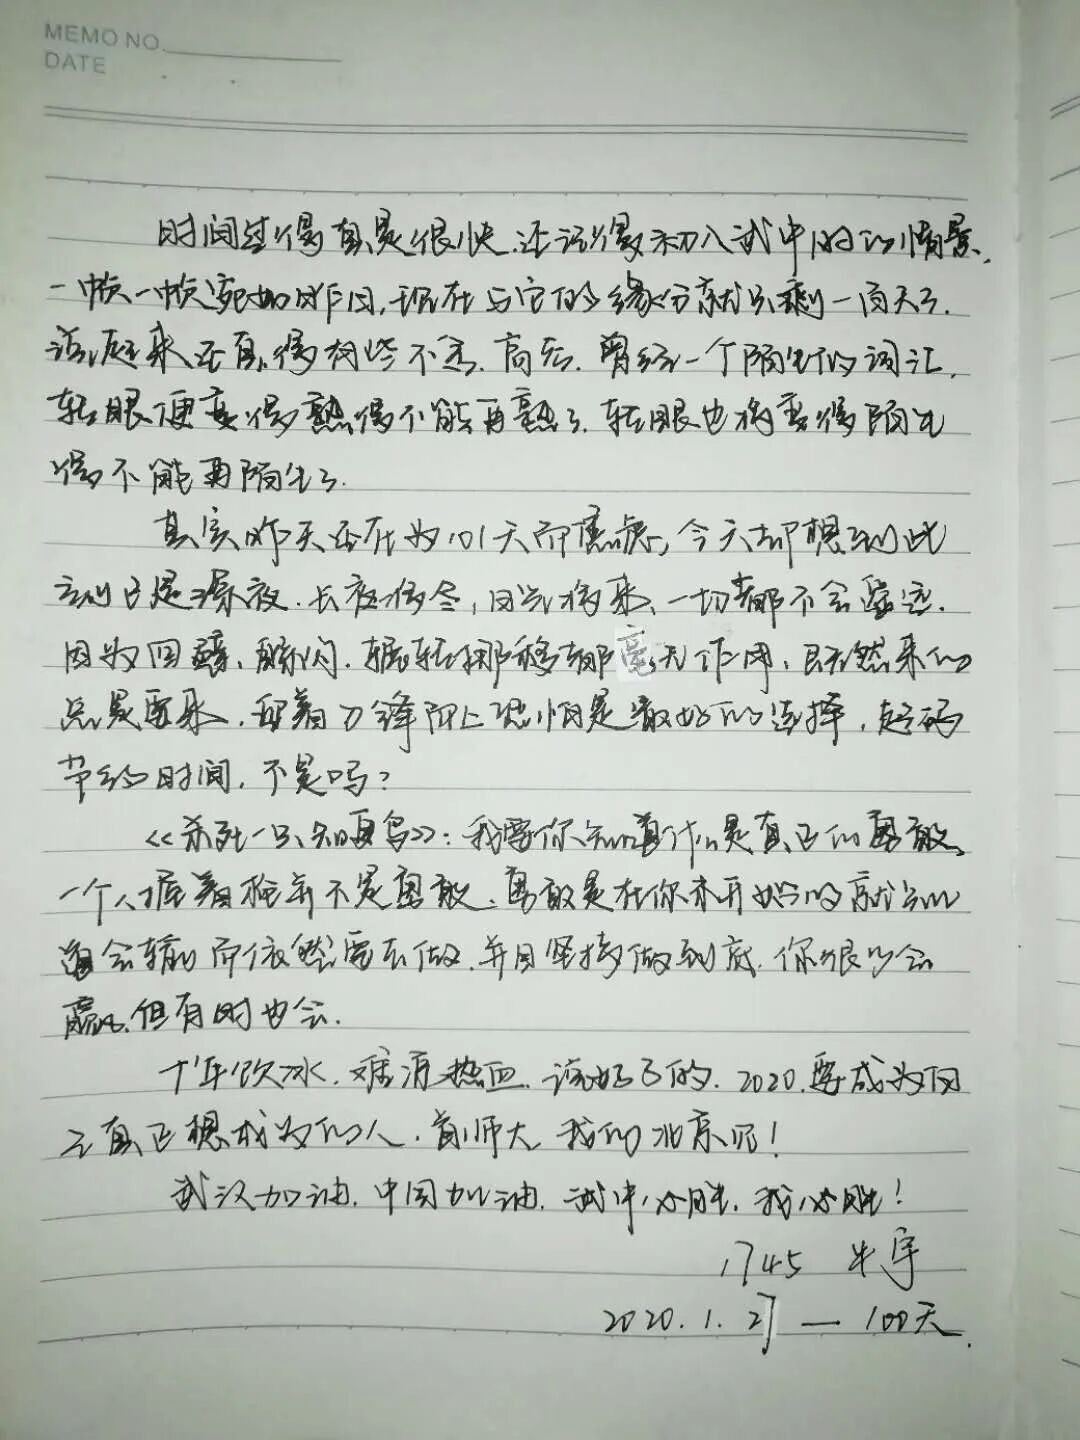 MEMO NO.
DATE
时间过得真是很快,还记得初入武中时的情景,
一帧一帧宛如昨日,现在与它的缘分就只剩一百天了.
说起来还真得有些不舍.高三,曾经一个陌生的词汇,
转眼便变得熟得不能再熟了.转眼也将变得陌生
得不能再陌生了.
其实昨天还在为101天而焦虑,今天却想到此
刻已是深夜.长夜将尽,日光将来,一切都不会
因为回避、躲闪、辗转挪移都毫无作用,既然来的
总是要来,迎着刀锋而上恐怕是最好的选择,起码
节约时间,不是吗?
《杀死一只知更鸟》:我要你知道什么是真正的勇敢,
一个人握着枪并不是勇敢,勇敢是在你未开始时就知
道会输,而依然要去做,并且坚持做到底.你很少会
赢,但有时也会.
十年饮冰,难凉热血.说好了的.2020.要成为自
己真正想成为的人,首师大,我们北京见!
武汉加油.中国加油.武中必胜.我必胜!
1745 牛宇
2020.1.27 — 100天.